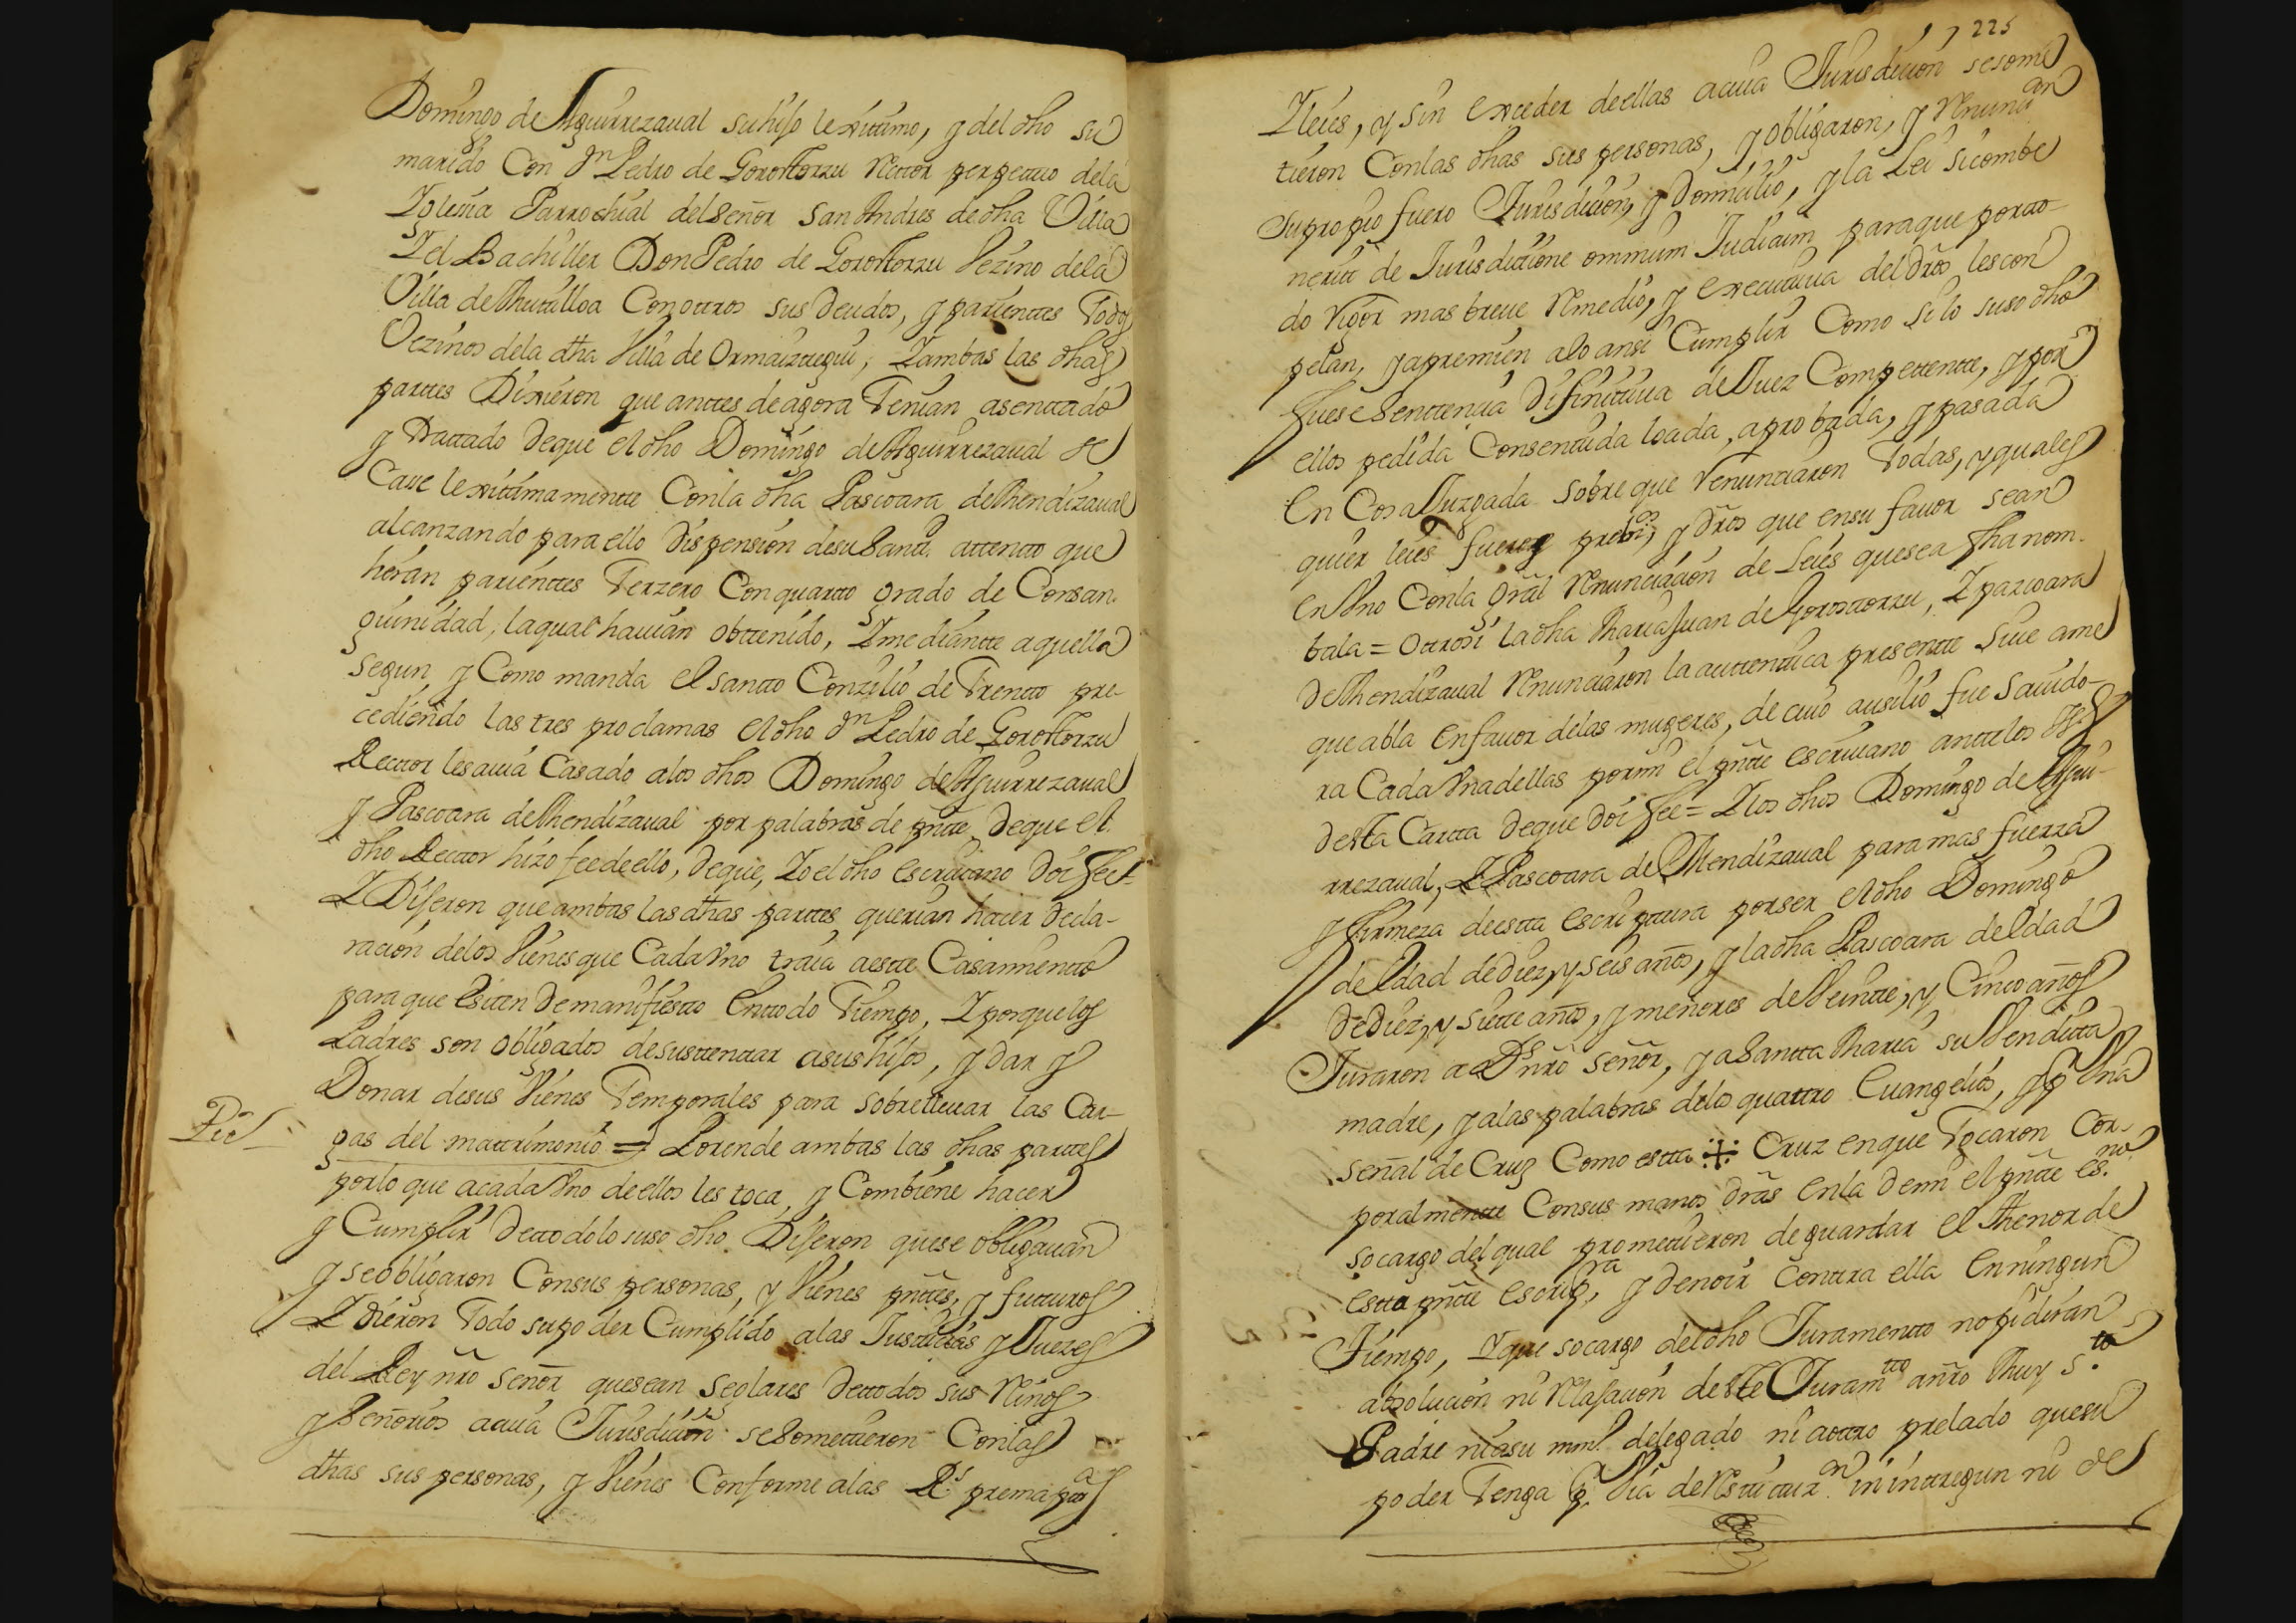 Domingo de Aguirrezaual su hijo lexitimo, y del dho su
marido Con Dn Pedro de Gorostorzu Rector perpetuo dela
Iglesia Parrochial del Señor San Andres de dha Villa
Y el Bachiller Don Pedro de Gorostorzu Vezino dela
Villa de Mutulloa Con otros sus deudos, y parientes Todos
Vezinos dela dha Villa de Ormaiztegui, Y ambas las dhas
partes Dixieron que anttes de agora Tenian asenttado
y Trattado de que el dho Domingo de Aguirrezaual se
Case lexitimamentte Con la dha Pascoara de Mendizaual
alcanzando para ello dispension de su Santd. attento que
heran parienttes Terzero Con quartto grado de Consan-
guinidad, la qual hauian obttenido, Y mediantte aquella
segun y Como manda el santto Conzilio de Trentto pre-
cediendo las tres proclamas el dho Dn Pedro de Gorostorzu
Recttor les auia Casado a los dhos Domingo de Aguirrezaual
y Pascoara de Mendizaual por palabras de pñtte de que el
dho Recttor hizo fee de ello, de que, Yo el dho escriuano doi fee=
Y Dijeron que ambas las dhas parttes querian hacer decla-
racion de los Vienes que Cada Vno traia a estte Casamientto
para que Esitten de manifiestto En ttodo Tiempo, Y porque los
Padres son obligados de susttenttar a sus hijos, y dar y
Donar de sus Vienes Temporales para sobrelleuar las Car-
gas del mattrimonio = Por ende ambas las dhas parttes
por lo que a cada Vno de ellos les toca, y Combiene hacer
y Cumplir de ttodo lo suso dho Dijeron que se obligauan
y se obligaron Con sus personas, y Vienes pñttes, y futturos
Y dieron Todo su poder Cumplido a las Justticias y Juezes
del Rey nro señor que sean seglares de ttodos sus Reinos
y Señorios a cuia Jurisdicion se Somettieron Con las
dhas sus personas, y Vienes Conforme a las Rs. prematicas
225
Y leies, y sin exceder de ellas a cuia Jurisdicion se some
tieron Con las dhas sus personas, y obligaron, y Renuncian
Su propio fuero Jurisdicion, y Domicilio, y la Lei sicombe
nerit de Jurisdictione omnium Judicum para que por tto-
do Rigor mas breue Remedio, y executtiua del dro les con
pelan, y apremien a lo ansi Cumplir Como si lo suso dho
fuese Senttencia Difinittiua de Juez Compettentte, y por
ellos pedida Consenttida loada, aprobada, y pasada
En Cosa Juzgada sobre que Renunciaron Todas, y quales
quier leies fueros preui, y dros que en su fauor sean
en Vno Con la gral Renunciacion de Leies que sea fha nom
bala = Ottrosi la dha Maria Juan de Gorostorzu, Y pascoara
de Mendizaual Renunciaron la auttenttica presentte Siue ame
que abla En fauor de las mugeres, de cuio ausilio fue sauido-
ra Cada Vna dellas por mi el pñtte escriuano antte los tts.
desta Cartta de que doi fee = Y los dhos Domingo de Aguir-
rrezaual, Y Pascoara de Mendizaual para mas fuerza
y firmeza de estta escripttura por ser el dho Domingo
de Edad de diez, y seis años, y la dha Pascoara de Edad
de diez, y siette años, y menores de Veintte, y Cinco años
Juraron a Ds nro Señor, y a Santta Maria su Vendita
madre, y a las palabras de los quattro Euangelios, y p Vna
señal de Cruz Como estta ✠ Cruz en que Tocaron Cor-
poralmentte Con sus manos dras en la de mi el pñtte es.no
so cargo del qual prometieron de guardar el Thenor de
estta pñtte escrip.ra, y de no ir Conttra ella En ningun
Tiempo, Y que so cargo del dho Juramentto no pidiran
absolucion ni Relajacion de este Juramtto a nro Muy S.to
Padre ni a su mnl. delegado ni a ottro prelado que su
poder Tenga p. Via de Resttittuz.on in inttregun ni de